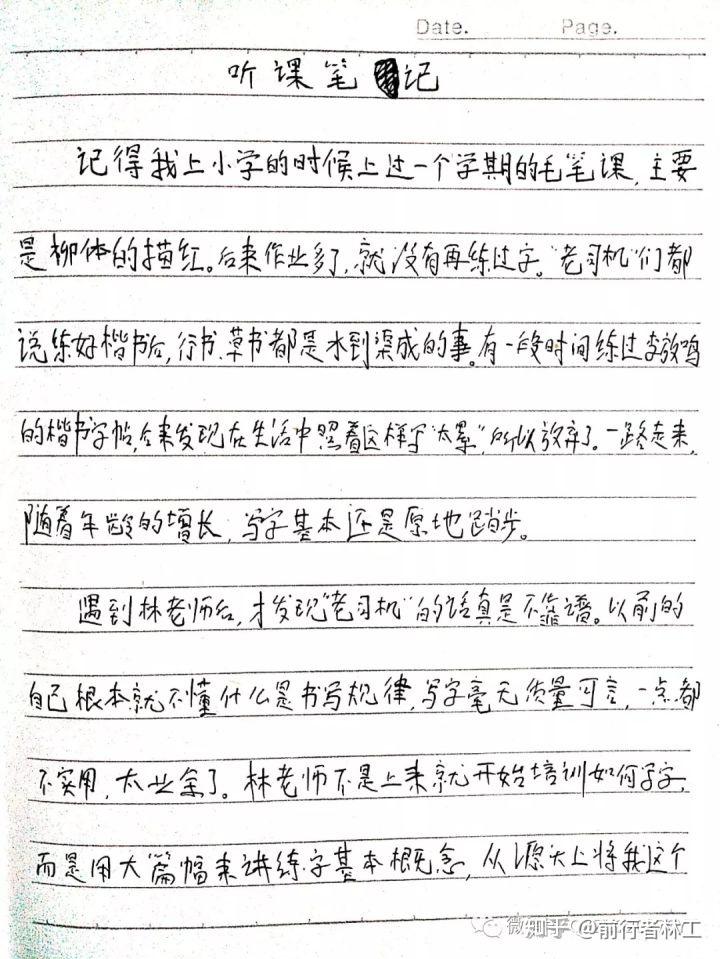 Date. Page.
听课笔记
记得我上小学的时候上过一个学期的毛笔课,主要
是柳体的描红。后来作业多了,就没有再练过字。“老司机”们都
说练好楷书后,行书、草书都是水到渠成的事。有一段时间练过李放鸣
的楷书字帖,后来发现在生活中照着这样写“太累”,所以放弃了。一路走来,
随着年龄的增长,写字基本还是原地踏步。
遇到林老师后,才发现“老司机”的话真是不靠谱。以前的
自己根本就不懂什么是书写规律,写字毫无质量可言,一点都
不实用,太业余了。林老师不是上来就开始培训如何写字,
而是用大篇幅来讲练字基本概念,从源头上将我这个
知乎 @前行者林工